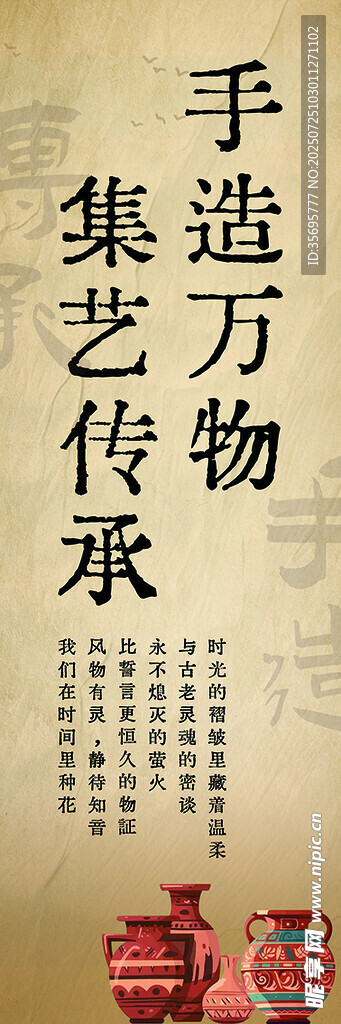 手造万物
集艺传承
时光的褶皱里藏着温柔
与古老灵魂的密谈
永不熄灭的萤火
比誓言更恒久的物証
风物有灵，静待知音
我们在时间里种花
傳承
手造
ID:35695777 NO:20250725103011271102
昵享网 www.nipic.cn